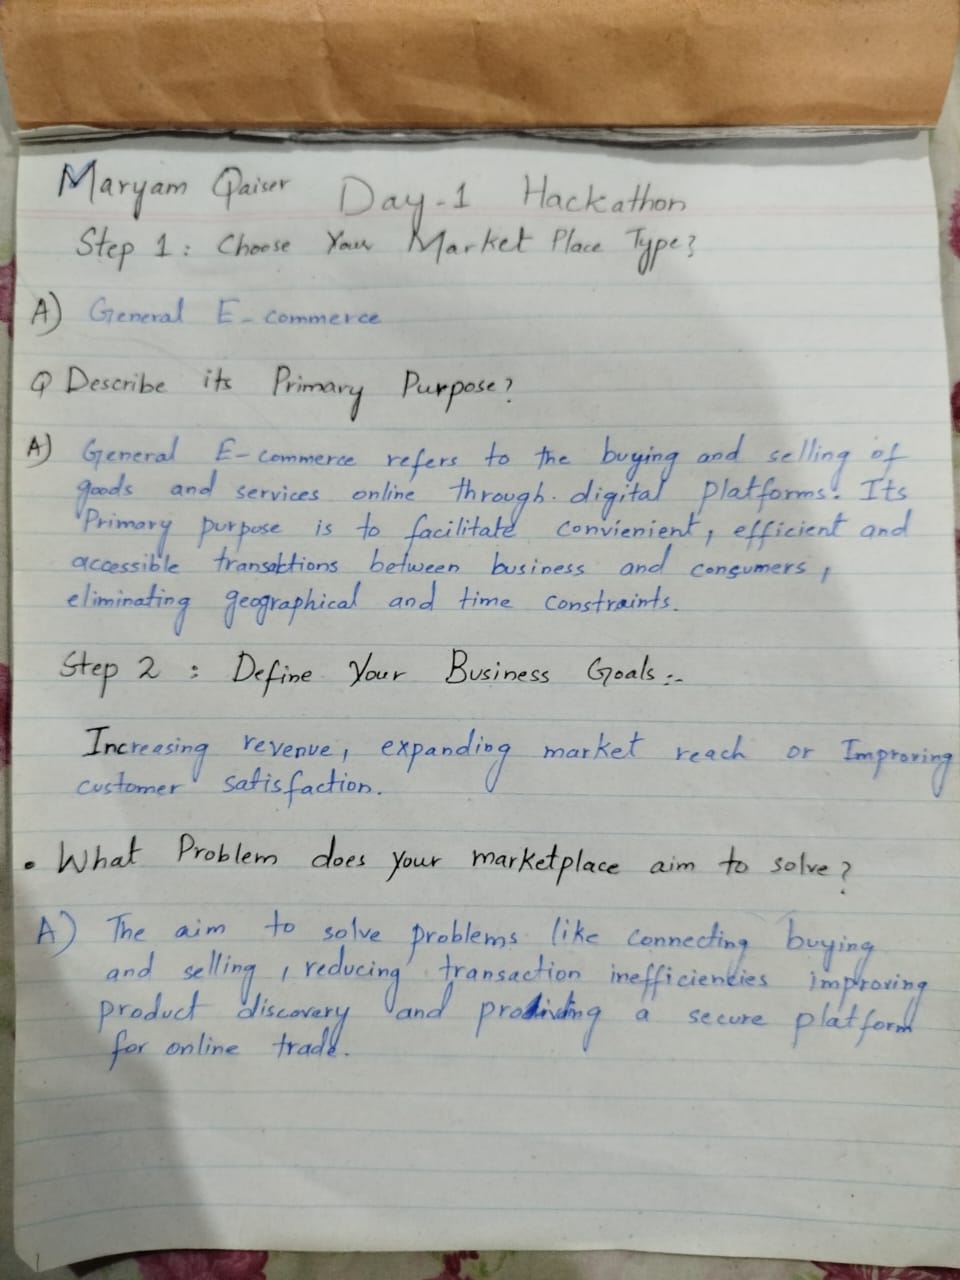 Maryam Qaiser Day-1 Hackathon
Step 1: Choose Your Market Place Type?
A) General E-commerce
Q Describe its Primary Purpose?
A) General E-commerce refers to the buying and selling of
goods and services online through. digital platforms. Its
Primary purpose is to facilitate convienient, efficient and
accessible transactions between business and consumers,
eliminating geographical and time constraints.
Step 2 : Define Your Business Goals:-
Increasing revenue, expanding market reach or Improving
customer satisfaction.
• What Problem does your marketplace aim to solve?
A) The aim to solve problems like connecting buying
and selling, reducing transaction inefficiencies improving
product discovery and providing a secure platform
for online trade.